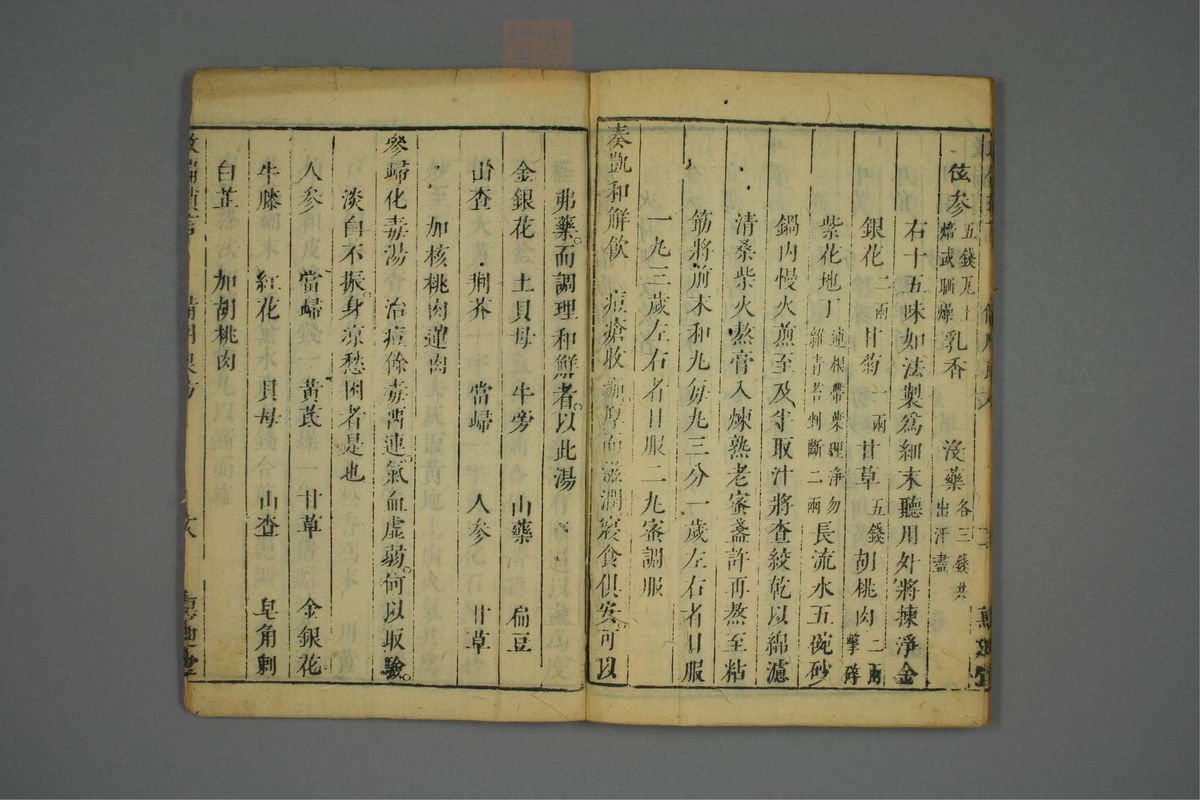 伭參五錢瓦上焙或晒燥 乳香 沒藥各三錢共出汗盡
右十五味如法製爲細末聽用外將揀淨金
銀花二兩甘菊一兩甘草五錢胡桃肉二兩擊碎
紫花地丁連根帶葉理淨勿雜青苔判斷二兩長流水五碗砂
鍋內慢火煎至及寺取汁將查絞乾以綿濾
清桑柴火熬膏入煉熟老蜜盞許再熬至粘
筋將前末和丸每丸三分一歲左右者日服
一丸三歲左右者日服二丸蜜調服
奏凱和解飲 痘瘡收靨厚而滋潤寢食俱安可以
弗藥而調理和解者以此湯
金銀花 土貝母 牛旁 山藥 扁豆
山查 荊芥 當歸 人參 甘草
加核桃肉蓮肉
參歸化毒湯 治痘餘毒畱連氣血虛弱何以取驗
淡白不振身凉愁困者是也
人參 當歸 黃芪 甘草 金銀花
牛膝 紅花 貝母 山查 皂角刺
白芷 加胡桃肉